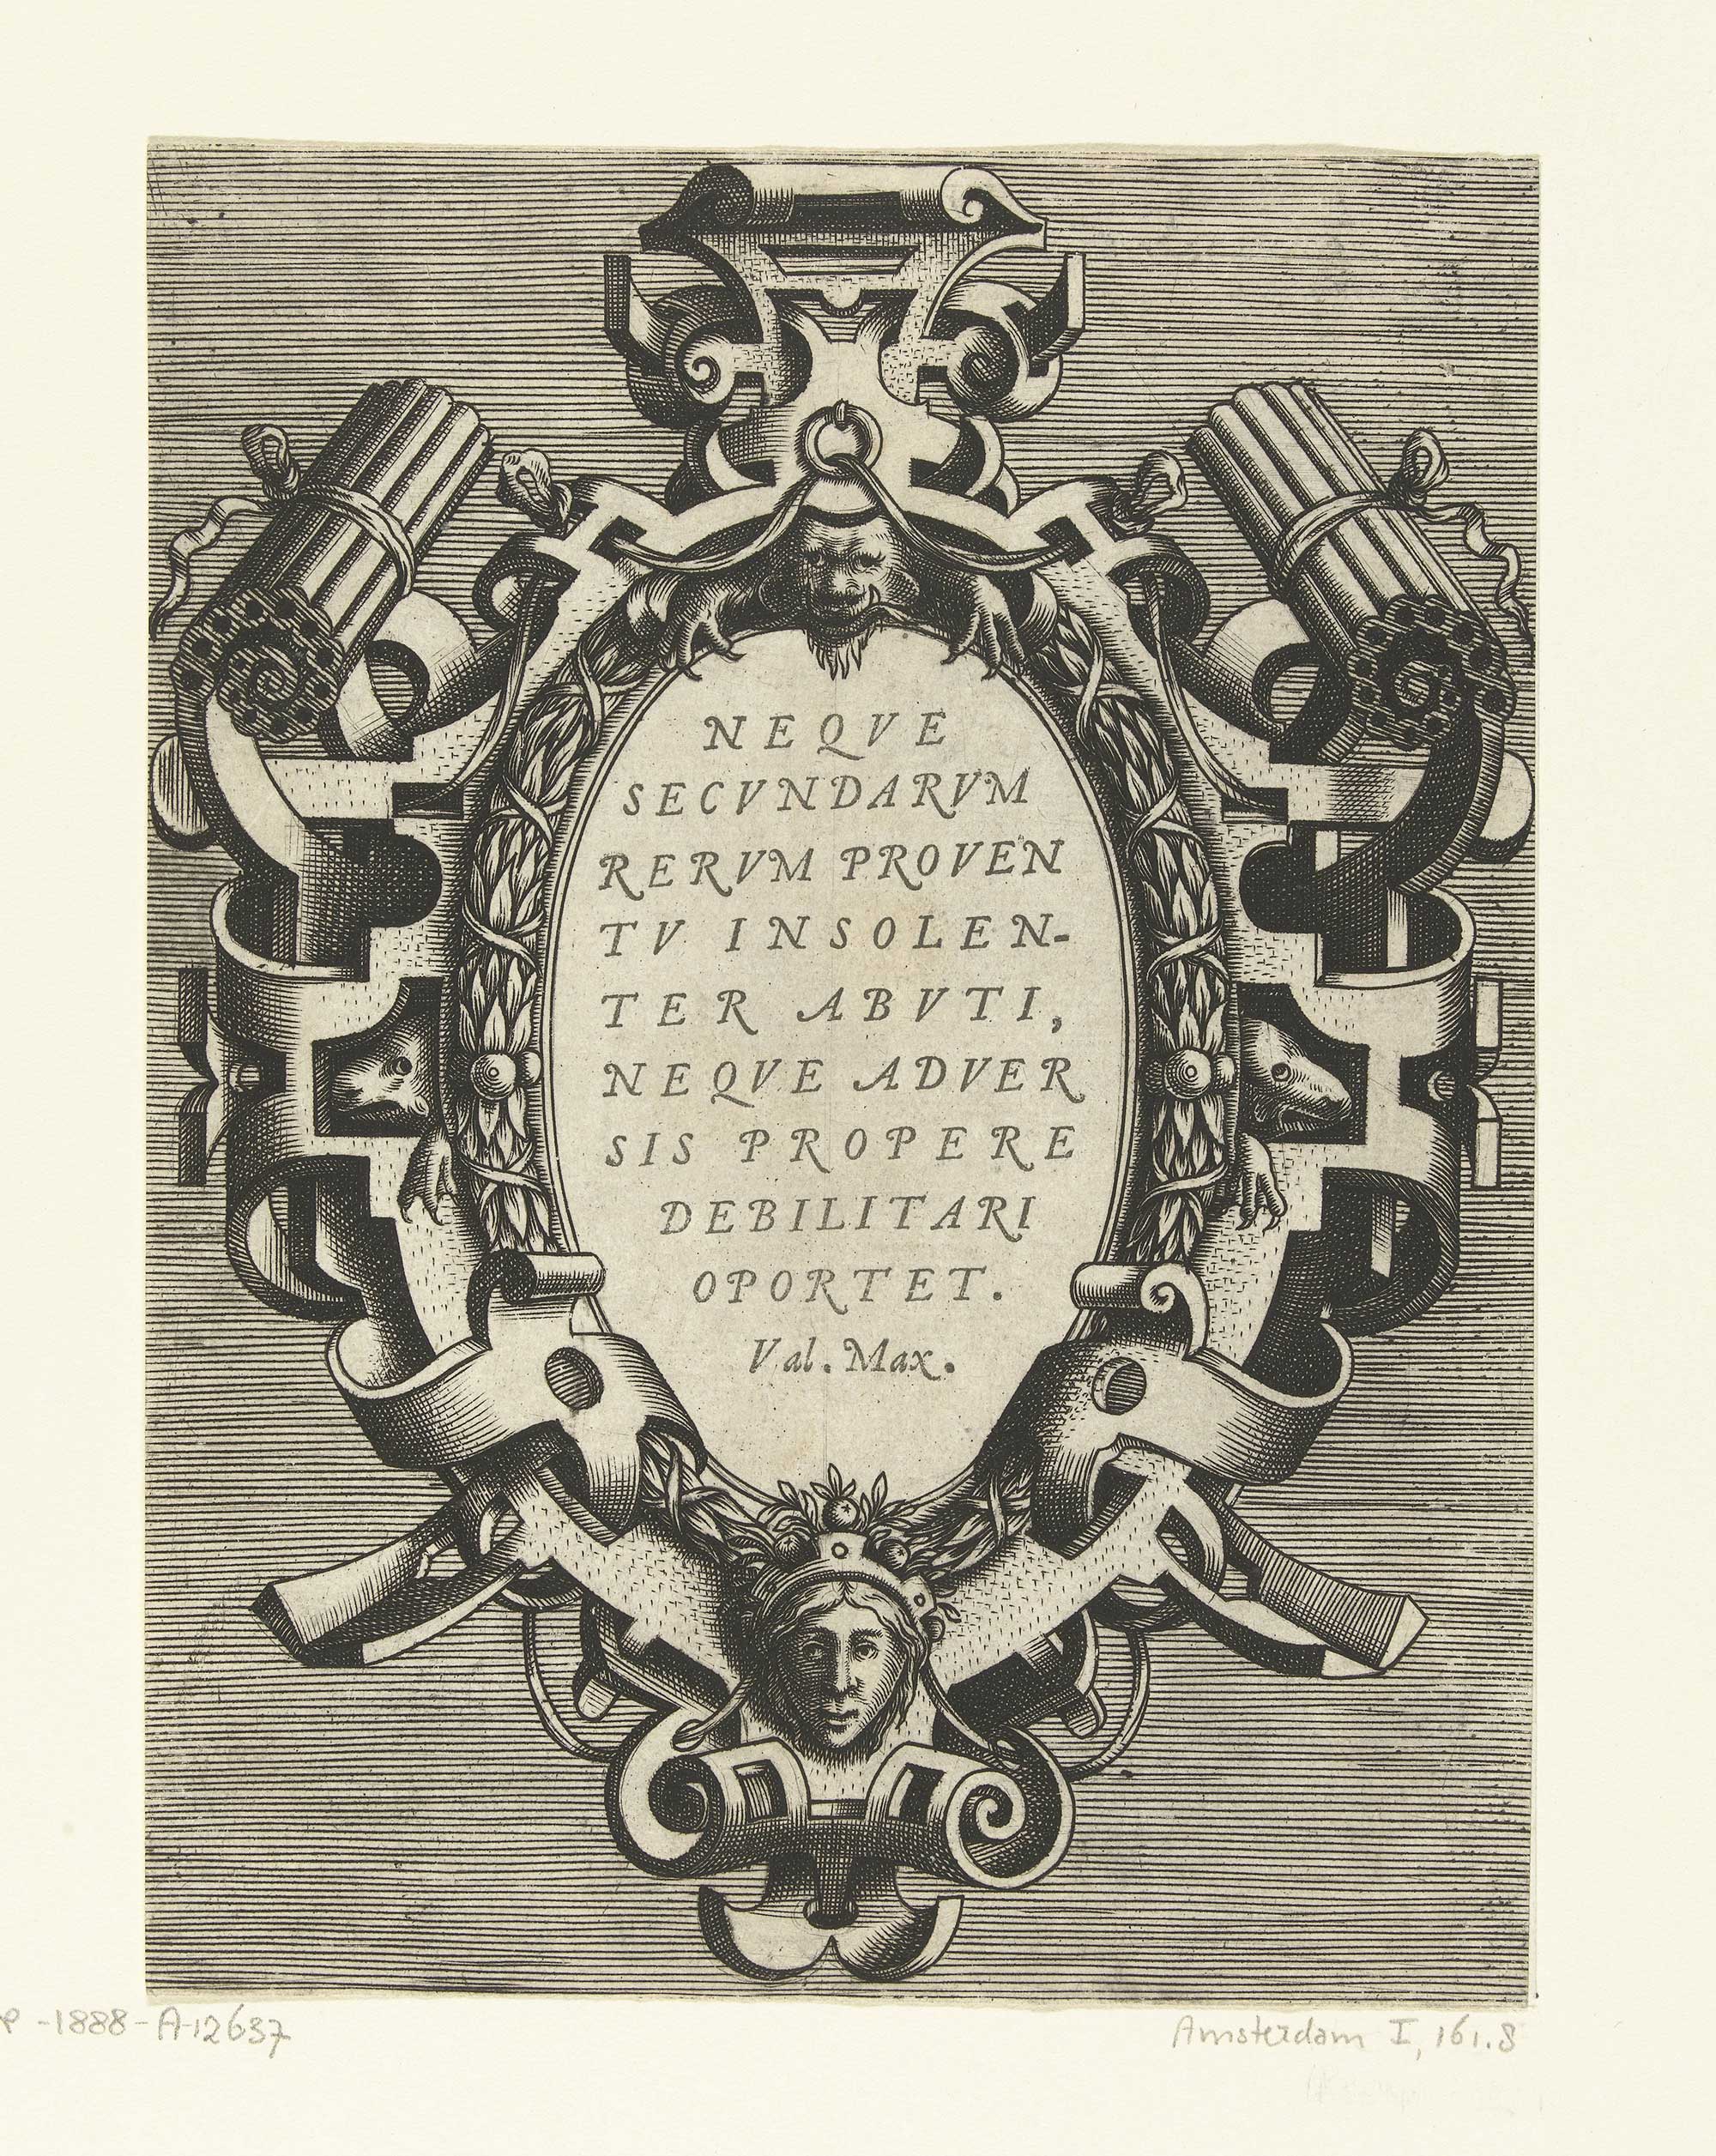 NEQVE
SECVNDARVM
RERVM PROVEN
TV INSOLEN-
TER ABVTI,
NEQVE ADVER
SIS PROPERE
DEBILITARI
OPORTET.
Val. Max.
P-1888-A-12637
Amsterdam I, 161.8